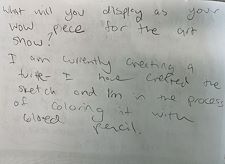 What will you display as your
wow piece for the art
show?
I am currently creating a
I have created the
sketch and I'm in the process
of coloring it with
colored pencil.